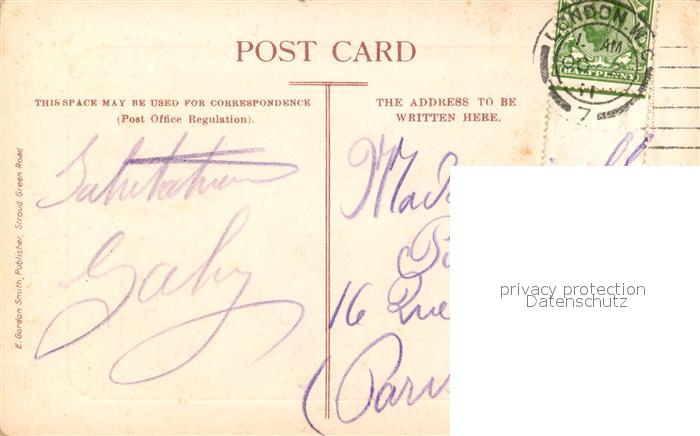 POST CARD
THIS SPACE MAY BE USED FOR CORRESPONDENCE
(Post Office Regulation).
THE ADDRESS TO BE
WRITTEN HERE.
LONDON. W.C.
AM
OC
11
7
HALFPENNY
Salutations
Gaby
16 Rue
Paris
E. Gordon Smith, Publisher, Stroud Green Road
privacy protection
Datenschutz